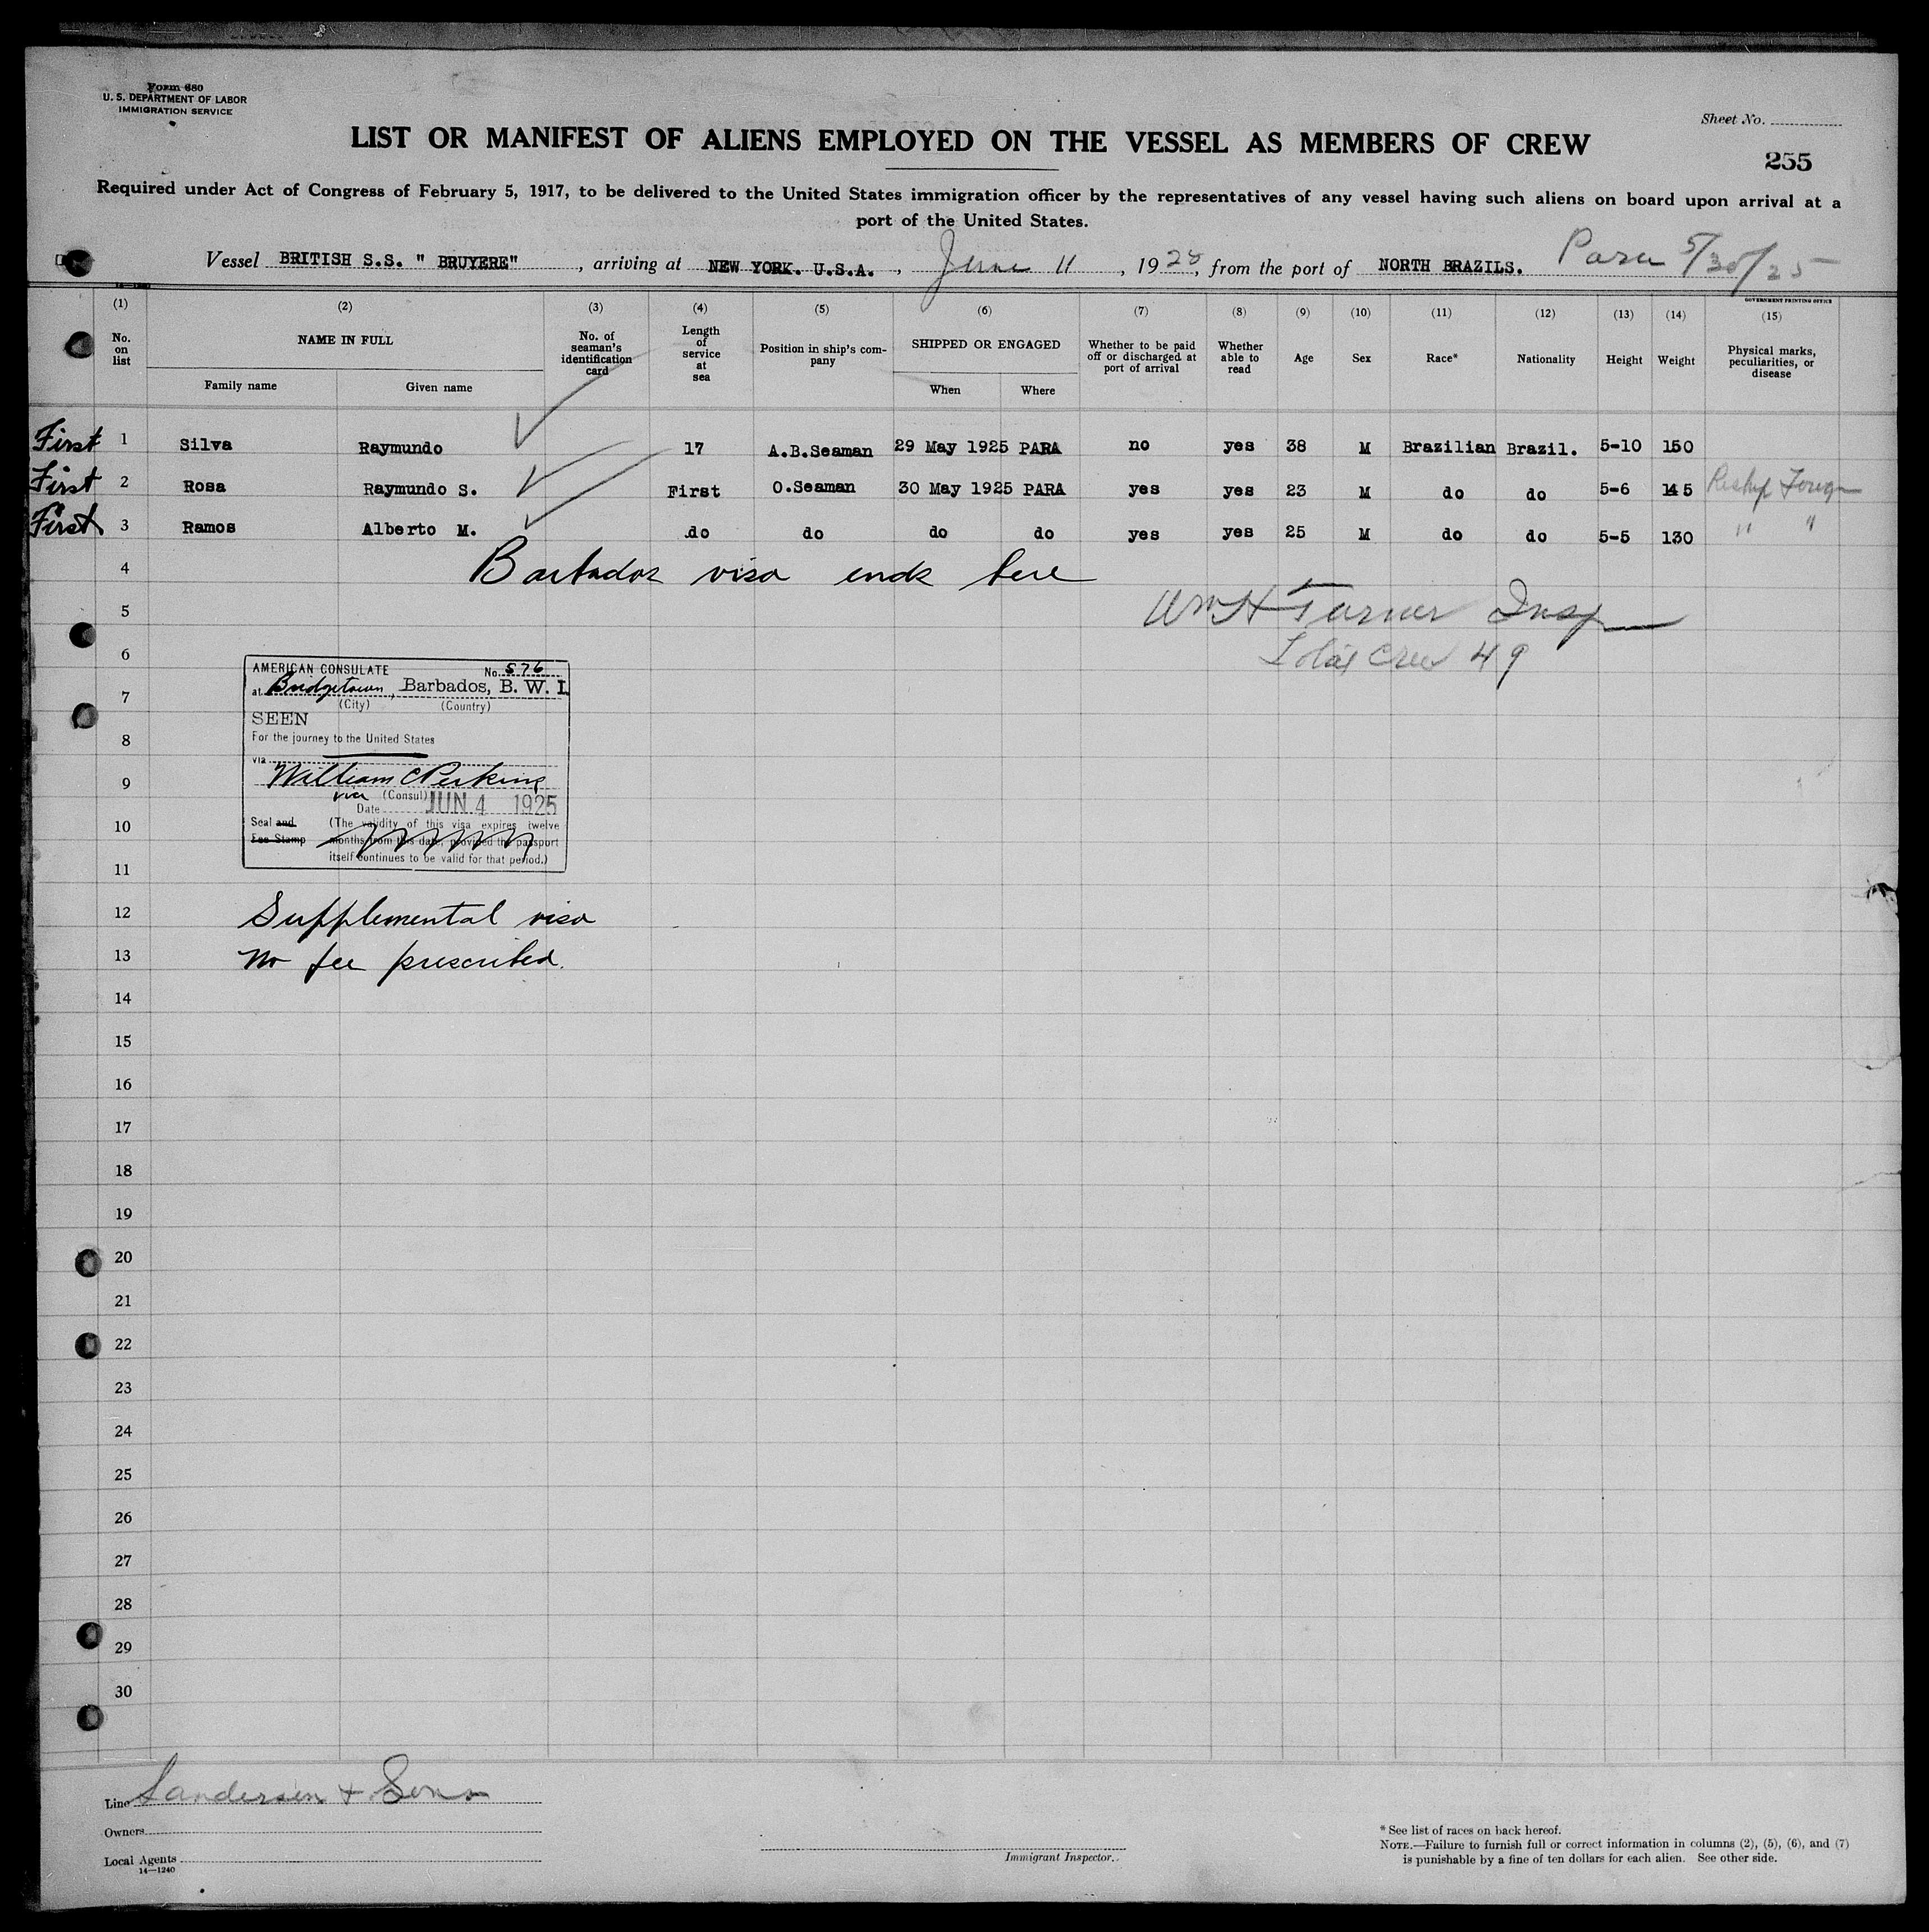 Form 680
U. S. DEPARTMENT OF LABOR
IMMIGRATION SERVICE
Sheet No.
LIST OR MANIFEST OF ALIENS EMPLOYED ON THE VESSEL AS MEMBERS OF CREW
255
Required under Act of Congress of February 5, 1917, to be delivered to the United States immigration officer by the representatives of any vessel having such aliens on board upon arrival at a
port of the United States.
Vessel BRITISH S.S. " BRUYERE" , arriving at NEW YORK. U.S.A. , June 11 , 1925, from the port of NORTH BRAZILS. Para 5/30/25
GOVERNMENT PRINTING OFFICE
(1) No. on list
(2) NAME IN FULL Family name Given name
(3) No. of seaman's identification card
(4) Length of service at sea
(5) Position in ship's company
(6) SHIPPED OR ENGAGED When Where
(7) Whether to be paid off or discharged at port of arrival
(8) Whether able to read
(9) Age
(10) Sex
(11) Race*
(12) Nationality
(13) Height
(14) Weight
(15) Physical marks, peculiarities, or disease
First 1 Silva Raymundo 17 A.B.Seaman 29 May 1925 PARA no yes 38 M Brazilian Brazil. 5-10 150
First 2 Rosa Raymundo S. First O.Seaman 30 May 1925 PARA yes yes 23 M do do 5-6 145 Reship Foreign
First 3 Ramos Alberto M. do do do do yes yes 25 M do do 5-5 130 " "
4 Barbados visa ends here
5 Wm H Turner Insp
6 Total Crew 49
AMERICAN CONSULATE No. 576
at Bridgetown, Barbados, B. W. I.
(City) (Country)
7
SEEN
8 For the journey to the United States
via
9 William C Perkins
vice (Consul)
Date JUN 4 1925
10 Seal and (The validity of this visa expires twelve
Fee Stamp months from this date, provided the passport
itself continues to be valid for that period.)
11
12 Supplemental visa
13 No fee prescribed.
14
15
16
17
18
19
20
21
22
23
24
25
26
27
28
29
30
Line Sanderson & Sons
Owners
Local Agents
14—1240
Immigrant Inspector.
* See list of races on back hereof.
NOTE.—Failure to furnish full or correct information in columns (2), (5), (6), and (7)
is punishable by a fine of ten dollars for each alien. See other side.